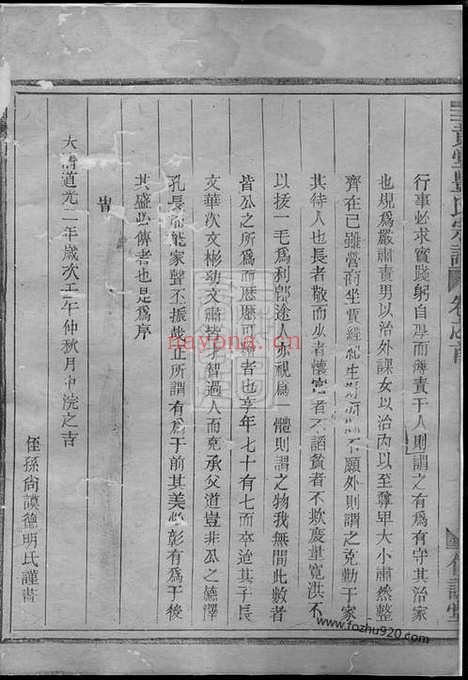 行事必求實踐躬自厚而薄責于人則謂之有為有守其治家
也規為嚴肅責男以治外課女以治內以至尊卑大小肅然整
齊在己雖營商坐賈經紀生 不願外則謂之克勤于家
其待人也長者敬而少者懷富者不謟貧者不欺度量寬洪不
以拔一毛為利卽途人亦視為一體則謂之物我無間此數者
皆公之所為而歷歷可 者也享年七十有七而卒迨其子長
文華次文彬幼文肅皆才智過人而克承父道豈非公之德澤
孔長 家聲丕振哉正所謂有為于前其美必彰有為于後
其盛必傳者也是為序
旹
大清道光二年歲次壬午仲秋月中浣之吉
侄孫尚謨德明氏謹書
氏宗譜 卷之首
nayona.cn
www.fozhu920.com